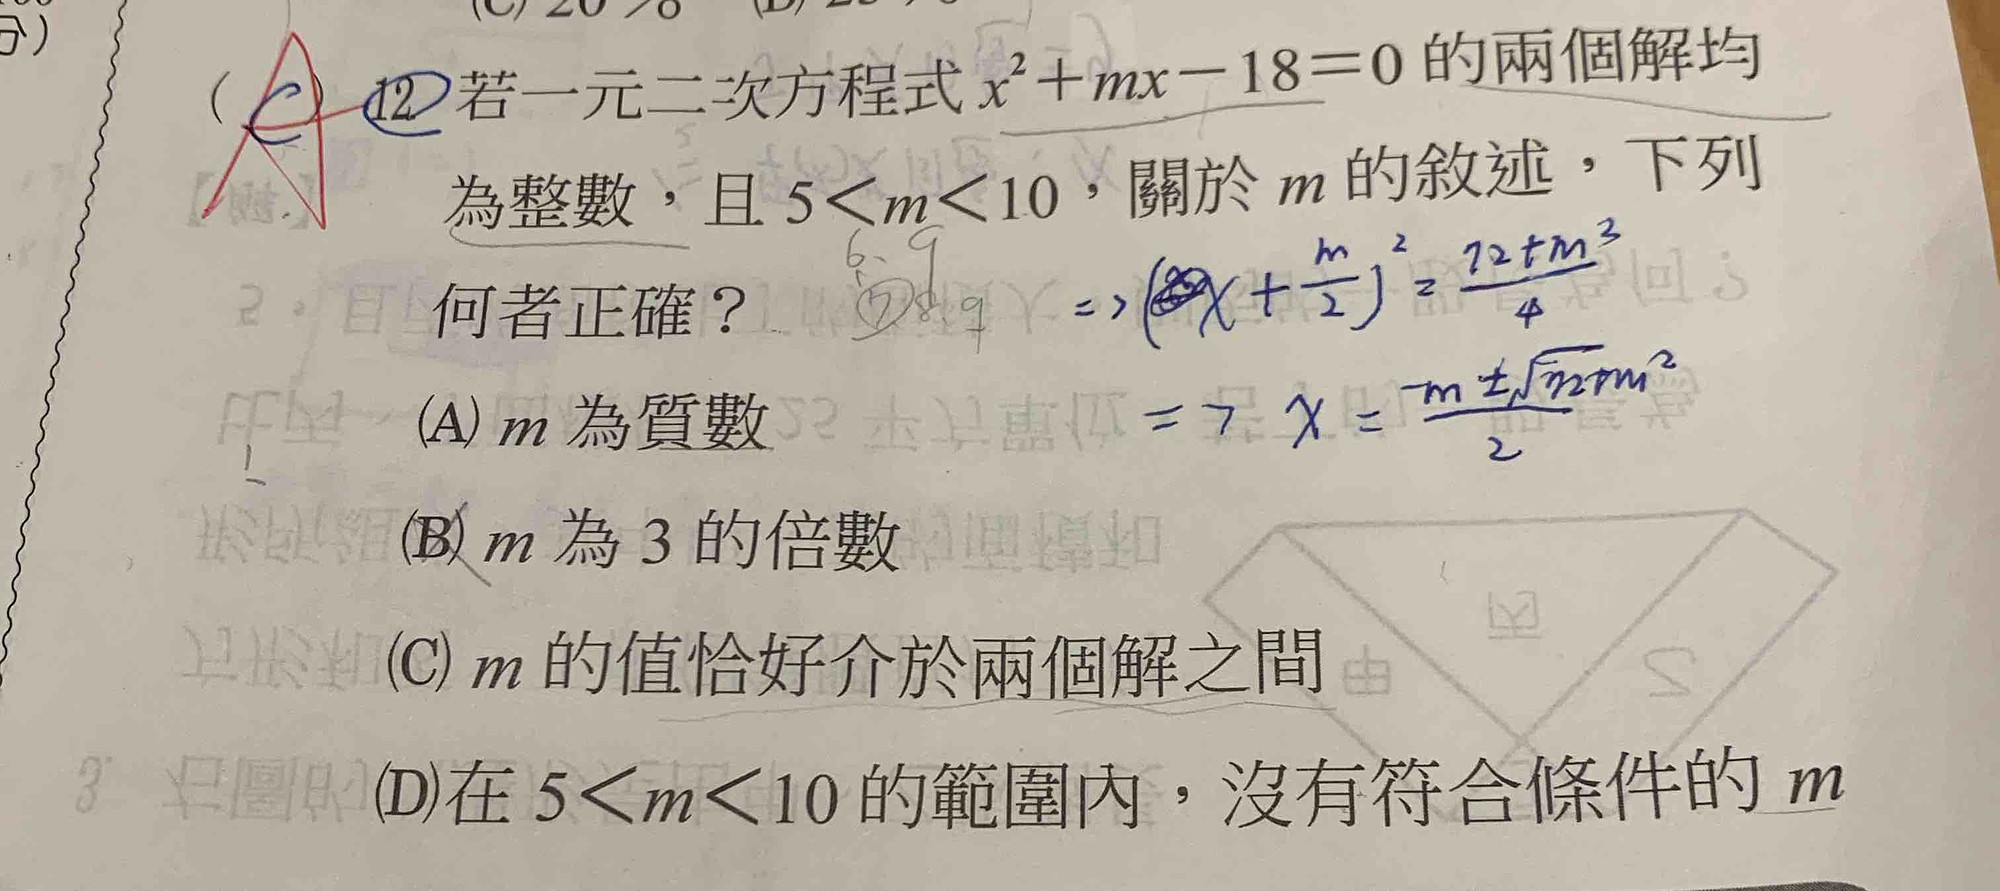 分)
(C) 20 % (D) 25 %
( C ) A 12 若一元二次方程式 x²+mx-18=0 的兩個解均
為整數,且 5<m<10,關於 m 的敘述,下列
6、9
何者正確? 7 8 9 => (x + m/2)² = 72+m³/4
(A) m 為質數 => x = -m±√72+m²/2
(B) m 為 3 的倍數
(C) m 的值恰好介於兩個解之間
(D)在 5<m<10 的範圍內,沒有符合條件的 m